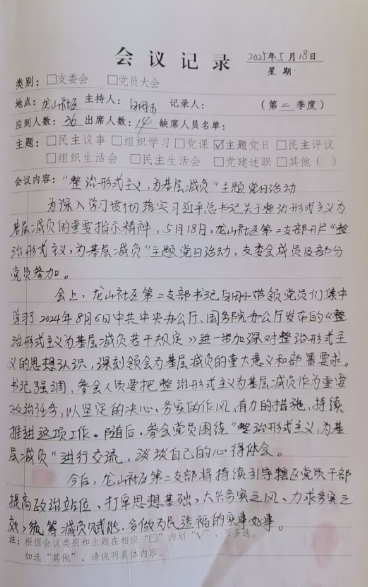 会议记录
2025年5月18日
星期
类别：□支委会 □党员大会
地点：龙山社区 主持人： 记录人： （第二季度）
应到人数：36 出席人数：14 缺席人员名单：
主题：□民主议事 □组织学习 □党课 ☑主题党日 □民主评议
□组织生活会 □民主生活会 □党建述职 □其他（ ）
会议内容："整治形式主义，为基层减负"主题党日活动
为深入学习贯彻落实习近平总书记关于整治形式主义为
基层减负的重要指示精神，5月18日，龙山社区第二支部开展"整
治形式主义，为基层减负"主题党日活动，支委会成员及部分
党员参加。
会上，龙山社区第二支部书记 带领党员们集中
学习2024年8月6日中共中央办公厅、国务院办公厅发布的《整
治形式主义为基层减负若干规定》进一步加深对整治形式主
义的思想认识，深刻领会为基层减负的重大意义和部署要求。
书记强调，参会人员要把整治形式主义为基层减负作为重要
政治任务，以坚定的决心、务实的作风、有力的措施，持续
推进这项工作。随后，参会党员围绕"整治形式主义，为基
层减负"进行交流，谈谈自己的心得体会。
今后，龙山社区第二支部将持续引导辖区党员干部
提高政治站位、打牢思想基础，大兴务实之风、力求务实之
效，统筹减负赋能，多做为民造福的实事好事。
注：根据会议类别和主题在相应"□"内划"√"，可多选，
如选"其他"，请说明具体内容。